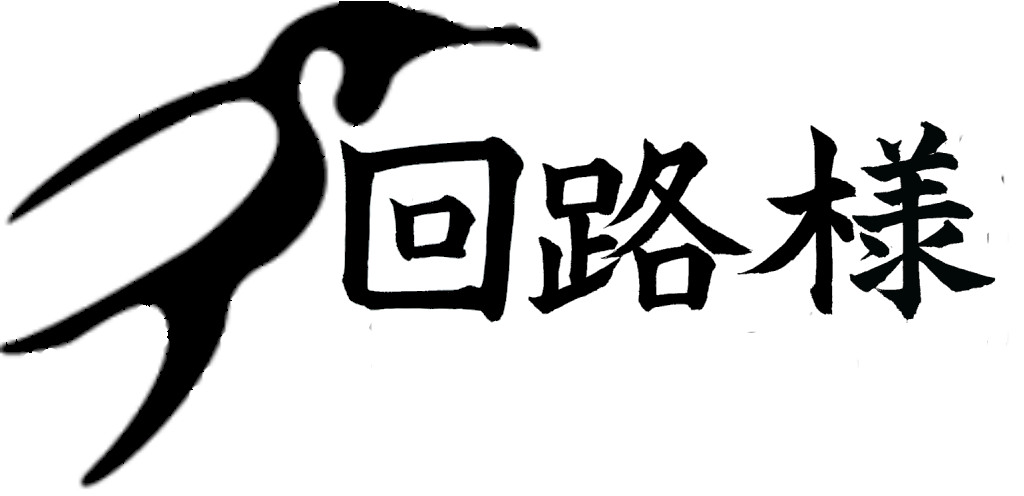 回路様